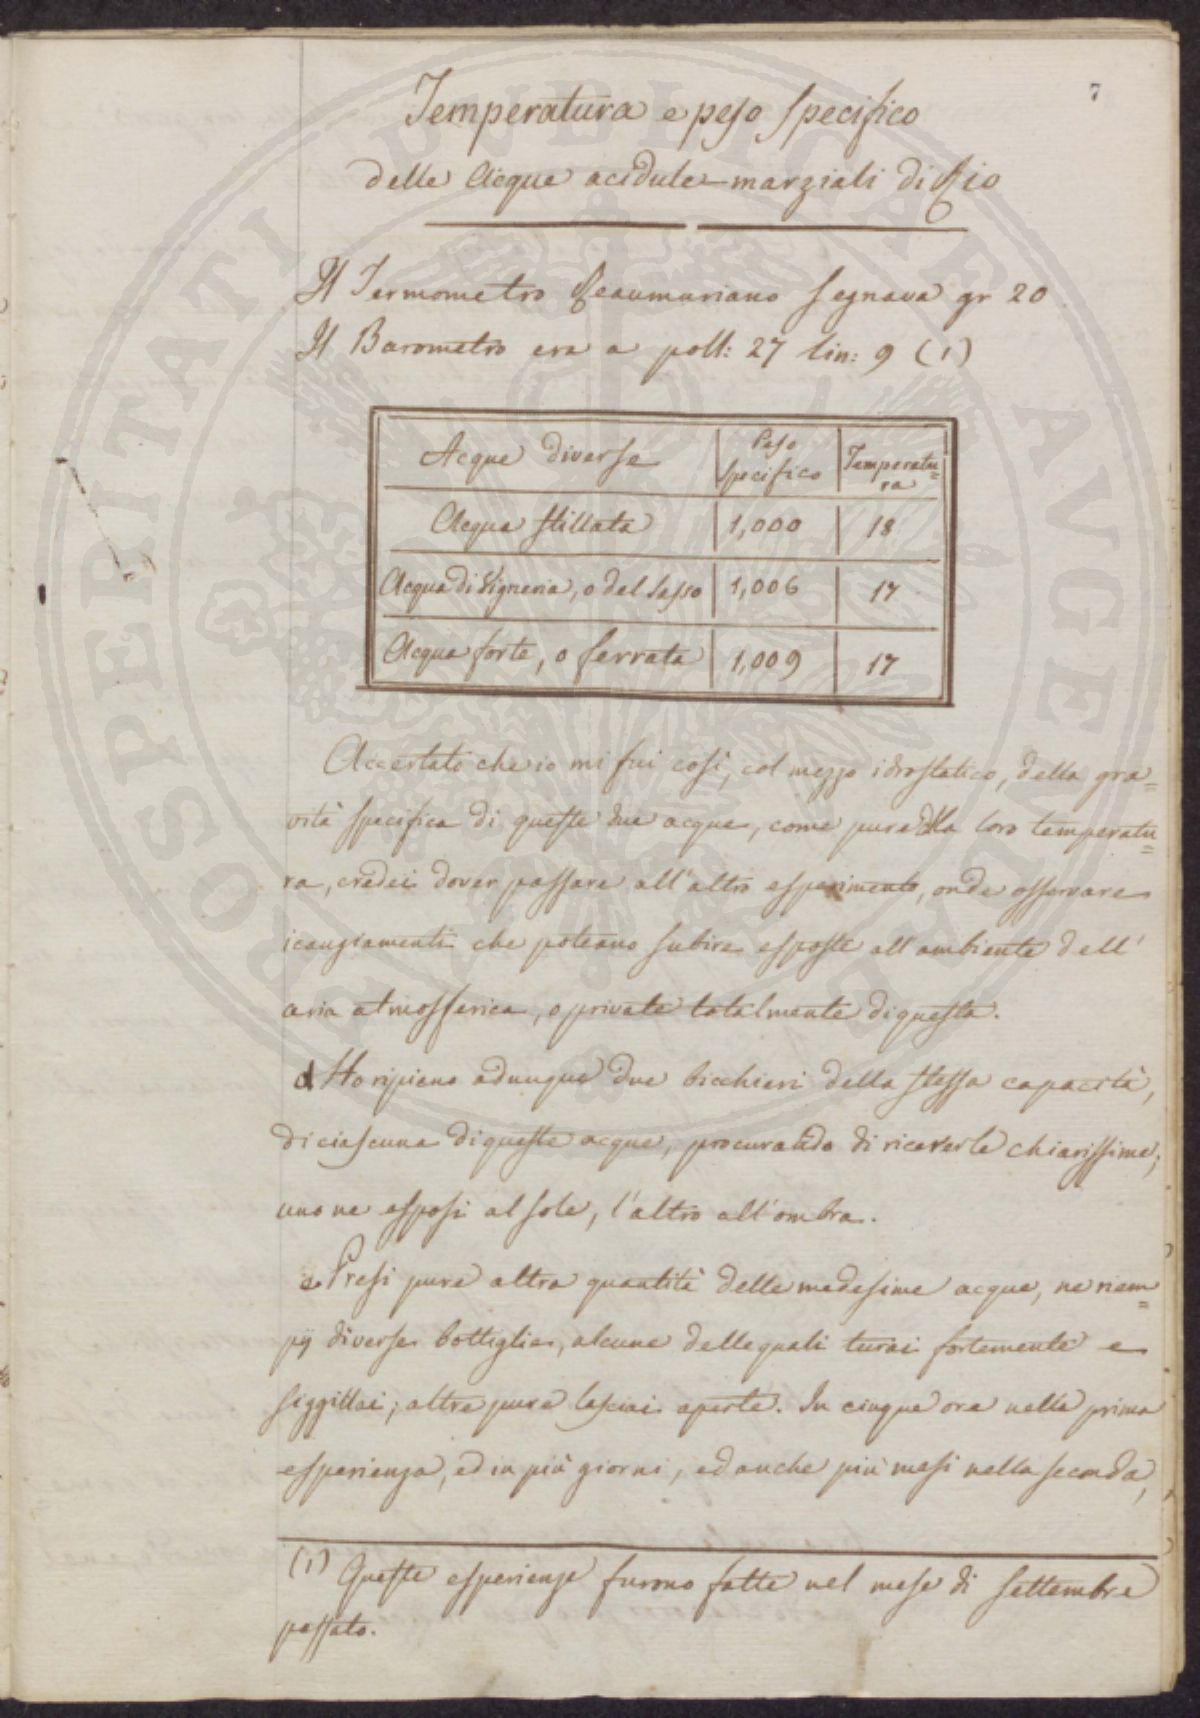 7
Temperatura e peso specifico
delle Acque acidule marziali di Rio
Il Termometro Reaumuriano segnava gr 20
Il Barometro era a poll: 27 lin: 9 (1)
Acque diverse | Peso specifico | Temperatu=ra
Acqua stillata | 1,000 | 18
Acqua di Vigneria, o del Sasso | 1,006 | 17
Acqua forte, o ferrata | 1,009 | 17
Accertato che io mi fui così, col mezzo idrostatico, della gra=
vità specifica di queste due acque, come pure della loro temperatu=
ra, credei dover passare all'altro esperimento, onde osservare
i cangiamenti che poteano subire esposte all'ambiente dell'
aria atmosferica, o private totalmente di questa.
d Ho ripieno adunque due bicchieri della stessa capacità,
di ciascuna di queste acque, procurando di riceverle chiarissime;
uno ne esposi al sole, l'altro all'ombra.
e Presi pure altra quantità delle medesime acque, ne riem=
pij diverse bottiglie, alcune delle quali turai fortemente e
siggillai; altre pure lasciai aperte. In cinque ore nella prima
esperienza, ed in più giorni, ed anche più mesi nella seconda,
(1) Queste esperienze furono fatte nel mese di settembre
passato.
PROSPERITATI PUBLICAE AUGENDAE